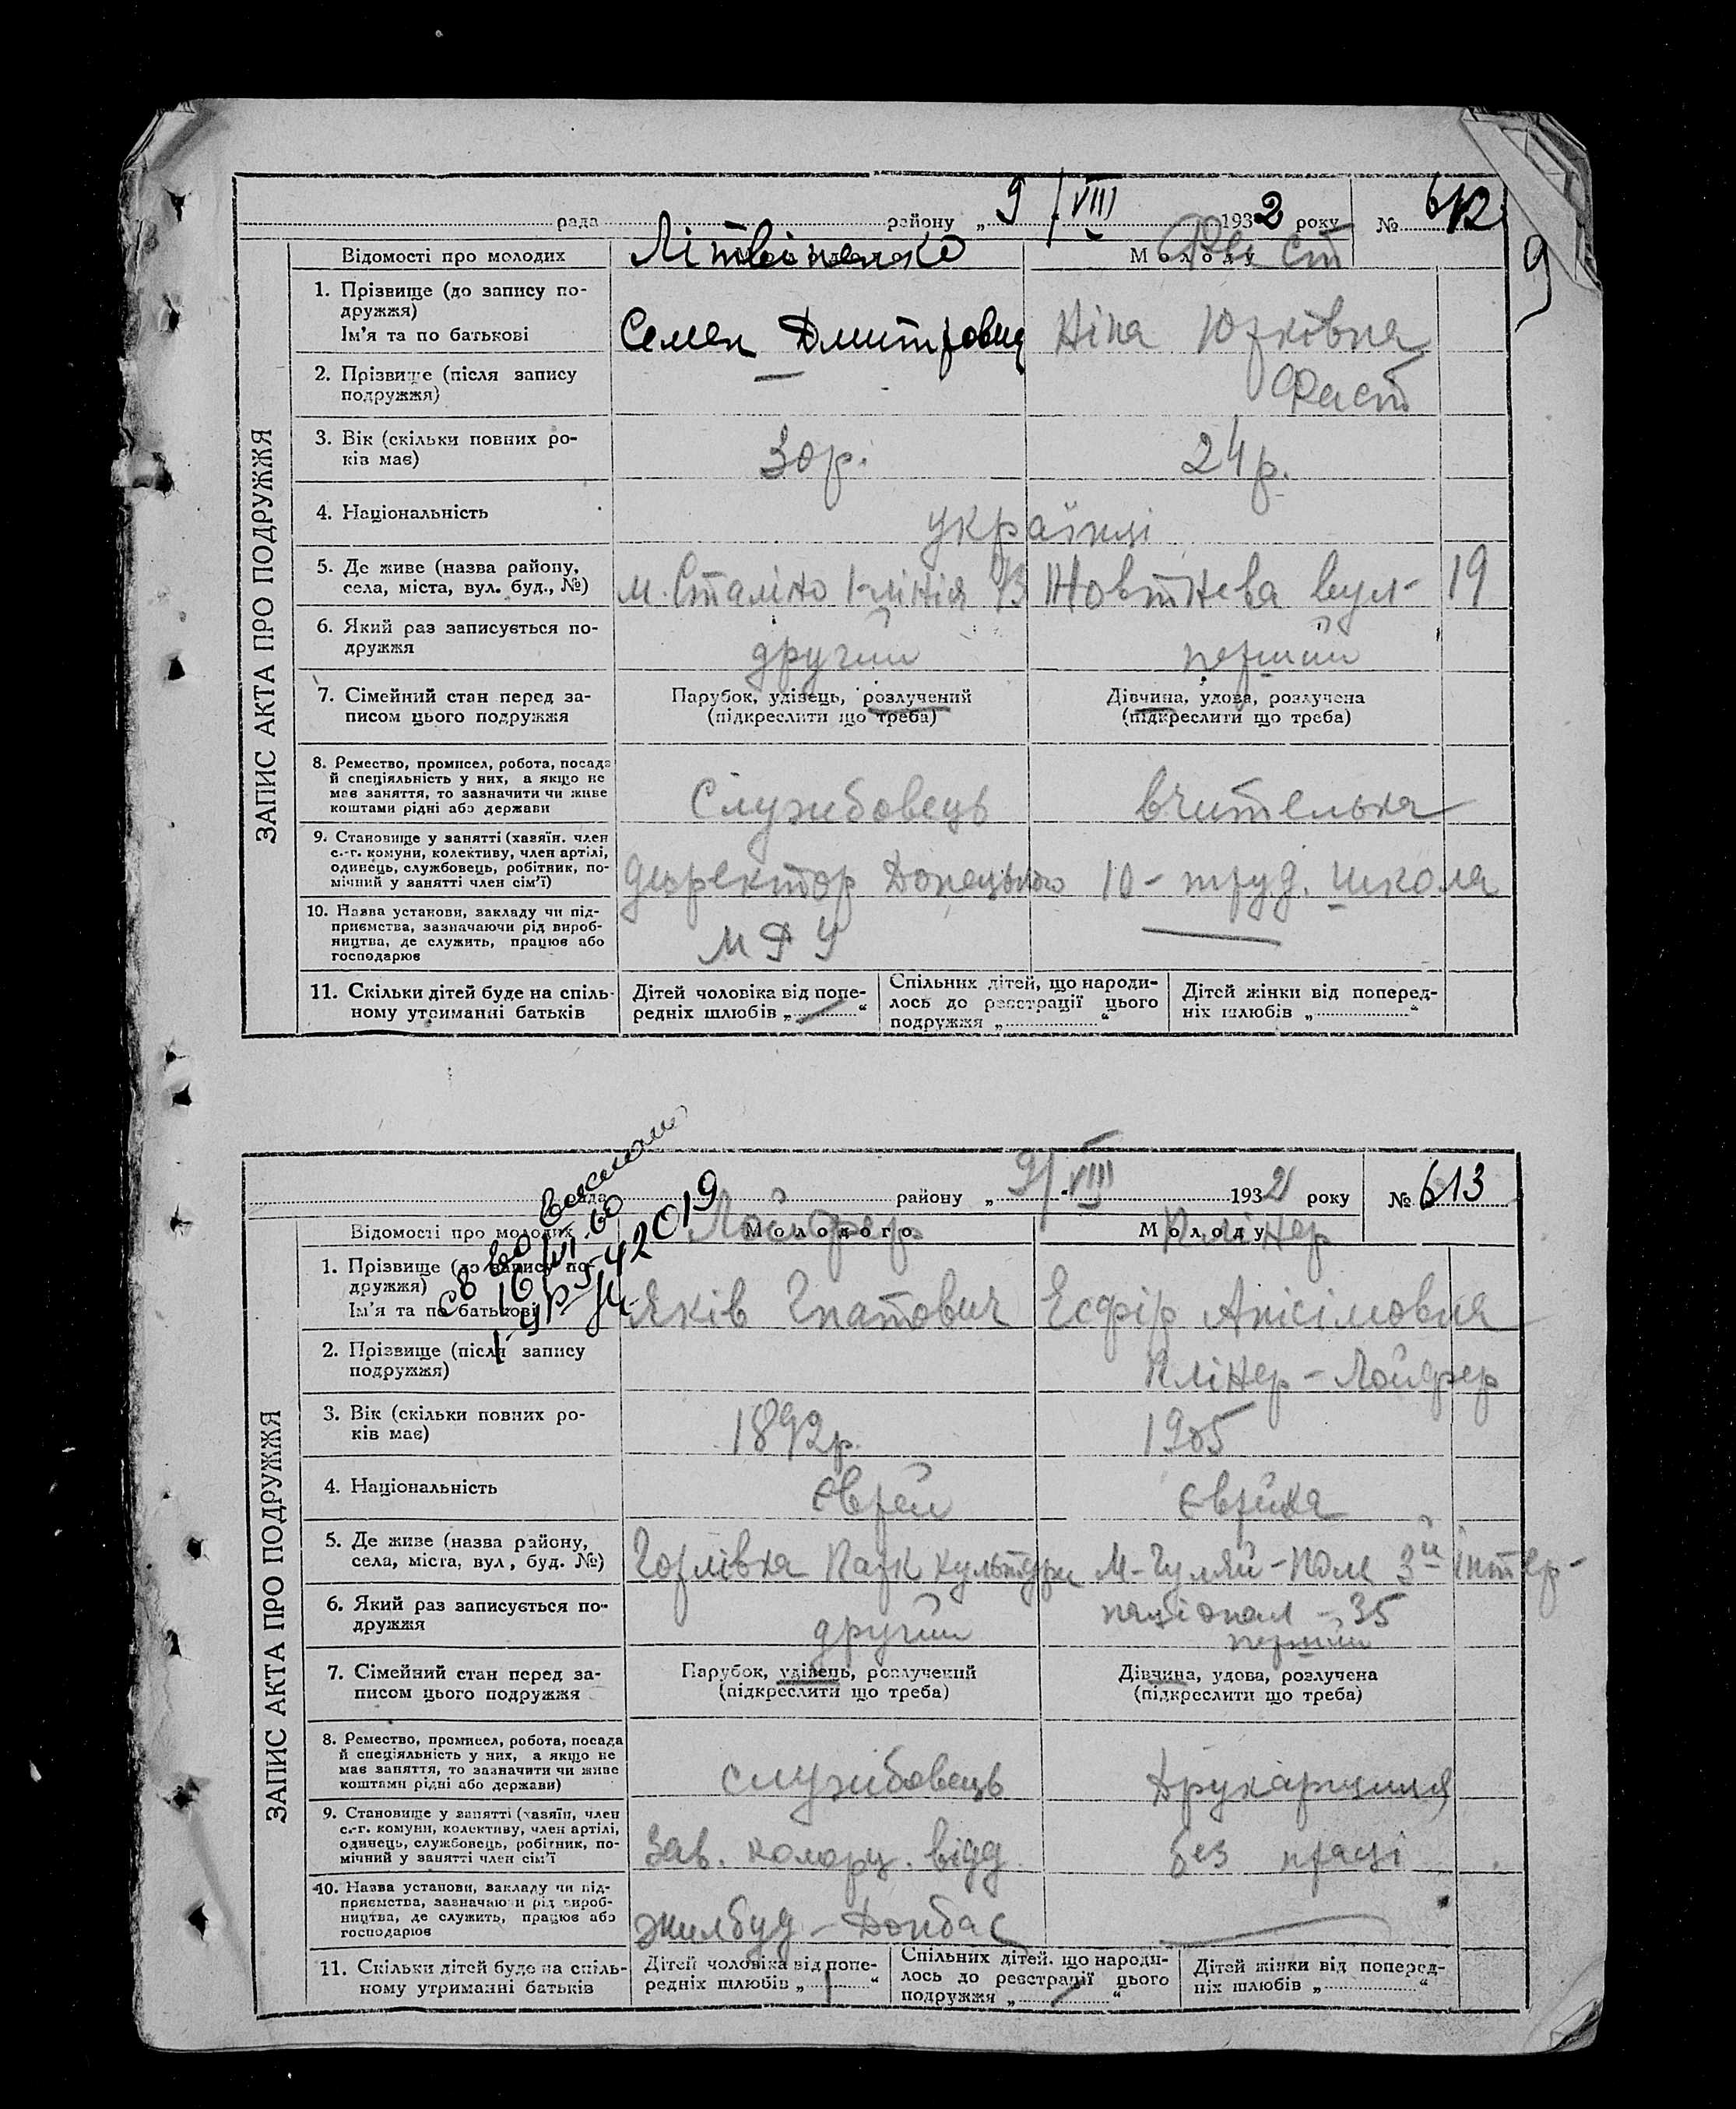 рада районy „ 9/VIII 1932 року № 612
9
ЗАПИС АКТА ПРО ПОДРУЖЖЯ
Відомості про молодих Літвіненко Молоду Фаст
1. Прізвище (до запису по-
дружжя)
Ім'я та по батькові Семен Дмитрович Ніна Юрківна
2. Прізвище (після запису
подружжя) — Фаст
3. Вік (скільки повних ро-
ків має) 30 р. 24 р.
4. Національність українці
5. Де живе (назва району,
села, міста, вул. буд., №) м. Сталіно 1-лінія Жовтнева вул- 19
6. Який раз записується по-
дружжя другий перший
7. Сімейний стан перед за-
писом цього подружжя
Парубок, удівець, розлучений
(підкреслити що треба)
Дівчина, удова, розлучена
(підкреслити що треба)
8. Ремество, промисел, робота, посада
й спеціяльність у них, а якщо не
має заняття, то зазначити чи живе
коштами рідні або держави Службовець вчителька
9. Становище у занятті (хазяїн. член
с.-г. комуни, колективу, член артілі,
одинець, службовець, робітник, по-
мічний у занятті член сім'ї) Директор Донецького 10 - труд. школа
10. Назва установи, закладу чи під-
приємства, зазначаючи рід вироб-
ництва, де служить, працює або
господарює МФУ —
11. Скільки дітей буде на спіль-
ному утриманні батьків
Дітей чоловіка від попе-
редніх шлюбів „ — “
Спільних дітей, що народи-
лось до реєстрації цього
подружжя „ “
Дітей жінки від поперед-
ніх шлюбів „ “
рада району „ 9/VIII 1932 року № 613
ЗАПИС АКТА ПРО ПОДРУЖЖЯ
Відомості про молодих Молодого Лойфер Молоду Клінер
1. Прізвище (до запису по-
дружжя)
Ім'я та по батькові Яків Гнатович Есфір Анісімовна
2. Прізвище (після запису
подружжя) Клінер - Лойфер
3. Вік (скільки повних ро-
ків має) 1892 р. 1905
4. Національність Єврей Єврейка
5. Де живе (назва району,
села, міста, вул, буд. №) Горлівка Парк культури М-Гуляй-Поле 3й Інтер-
націонал - 35
6. Який раз записується по-
дружжя другий перший
7. Сімейний стан перед за-
писом цього подружжя
Парубок, удівець, розлучений
(підкреслити що треба)
Дівчина, удова, розлучена
(підкреслити що треба)
8. Ремество, промисел, робота, посада
й спеціяльність у них, а якщо не
має заняття, то зазначити чи живе
коштами рідні або держави) службовець Друкарщиця
9. Становище у занятті (хазяїн, член
с.-г. комуни, колективу, член артілі,
одинець, службовець, робітник, по-
мічний у занятті член сім'ї Зав. відд без праці
10. Назва установи, закладу чи під-
приємства, зазначаючи рід вироб-
ництва, де служить, працює або
господарює Жилбуд - Донбас —
11. Скільки дітей буде на спіль-
ному утриманні батьків
Дітей чоловіка від попе-
редніх шлюбів „ 1 “
Спільних дітей, що народи-
лось до реєстрації цього
подружжя „ — “
Дітей жінки від поперед-
ніх шлюбів „ “